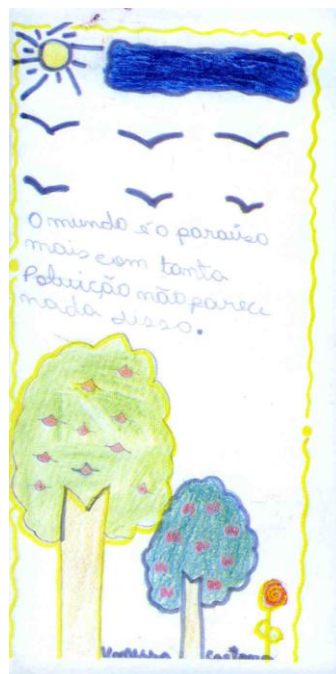 O mundo é o paraíso
mais com tanta
Poluição não parece
nada disso.